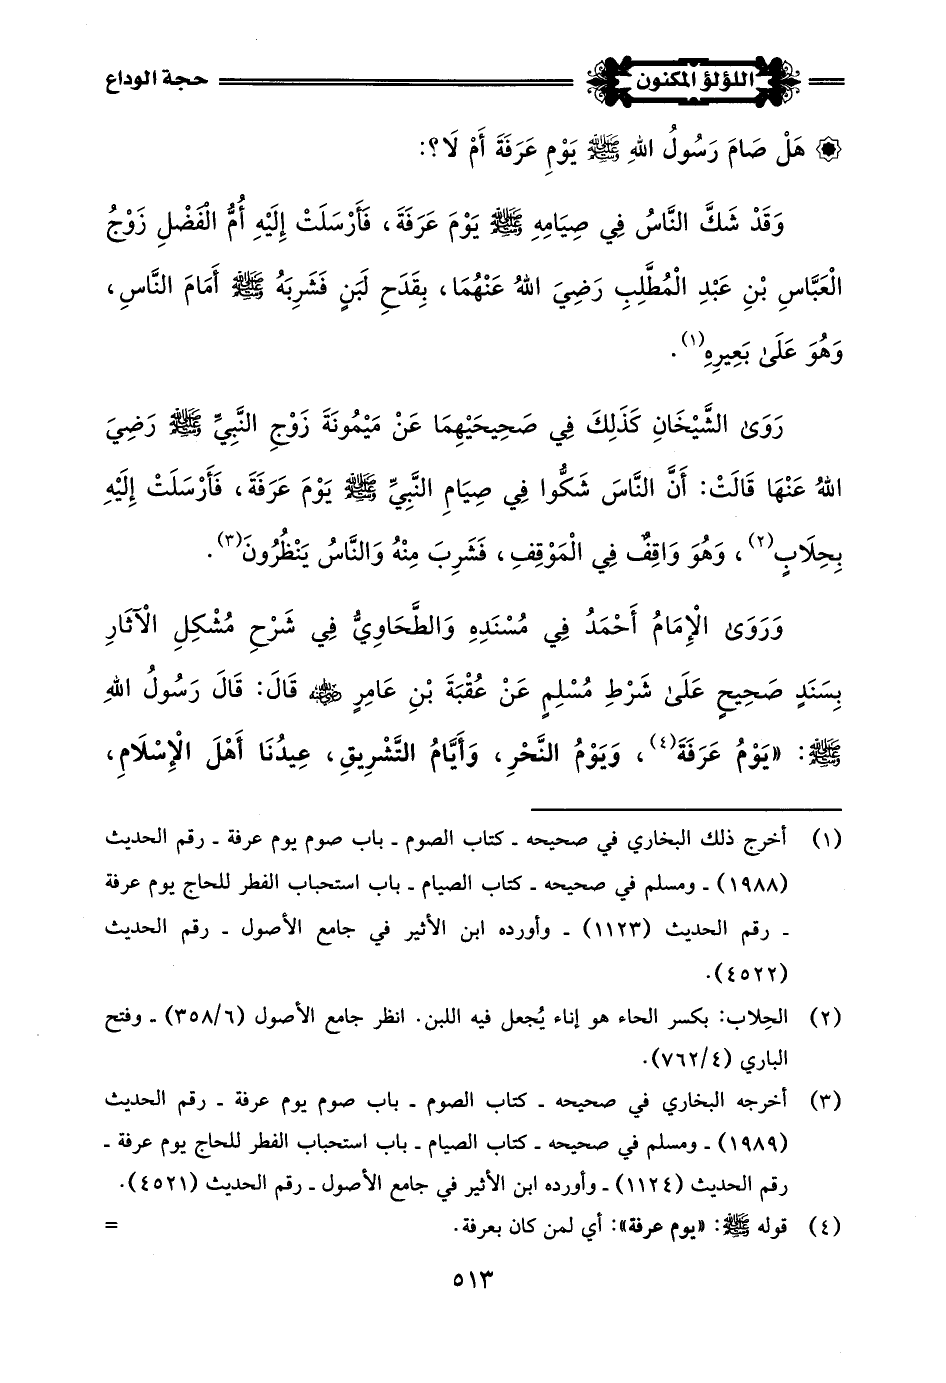 اللؤلؤ المكنون
حجة الوداع
هَلْ صَامَ رَسُولُ اللهِ ﷺ يَوْمِ عَرَفَةَ أَمْ لَا؟:
وَقَدْ شَكَّ النَّاسُ فِي صِيَامِهِ ﷺ يَوْمَ عَرَفَةَ، فَأَرْسَلَتْ إِلَيْهِ أُمُّ الْفَضْلِ زَوْجُ
الْعَبَّاسِ بْنِ عَبْدِ الْمُطَّلِبِ رَضِيَ اللهُ عَنْهُمَا، بِقَدَحِ لَبَنٍ فَشَرِبَهُ ﷺ أَمَامَ النَّاسِ،
وَهُوَ عَلَىٰ بَعِيرِهِ(١).
رَوَىٰ الشَّيْخَانِ كَذَلِكَ فِي صَحِيحَيْهِمَا عَنْ مَيْمُونَةَ زَوْجِ النَّبِيِّ ﷺ رَضِيَ
اللهُ عَنْهَا قَالَتْ: أَنَّ النَّاسَ شَكُّوا فِي صِيَامِ النَّبِيِّ ﷺ يَوْمَ عَرَفَةَ، فَأَرْسَلَتْ إِلَيْهِ
بِحِلَابٍ(٢)، وَهُوَ وَاقِفٌ فِي الْمَوْقِفِ، فَشَرِبَ مِنْهُ وَالنَّاسُ يَنْظُرُونَ(٣).
وَرَوَىٰ الْإِمَامُ أَحْمَدُ فِي مُسْنَدِهِ وَالطَّحَاوِيُّ فِي شَرْحِ مُشْكِلِ الْآثَارِ
بِسَنَدٍ صَحِيحٍ عَلَىٰ شَرْطِ مُسْلِمٍ عَنْ عُقْبَةَ بْنِ عَامِرٍ رضي الله عنه قَالَ: قَالَ رَسُولُ اللهِ
ﷺ: «يَوْمُ عَرَفَةَ(٤)، وَيَوْمُ النَّحْرِ، وَأَيَّامُ التَّشْرِيقِ، عِيدُنَا أَهْلَ الْإِسْلَامِ،
(١) أخرج ذلك البخاري في صحيحه ـ كتاب الصوم ـ باب صوم يوم عرفة ـ رقم الحديث
(١٩٨٨) ـ ومسلم في صحيحه ـ كتاب الصيام ـ باب استحباب الفطر للحاج يوم عرفة
ـ رقم الحديث (١١٢٣) ـ وأورده ابن الأثير في جامع الأصول ـ رقم الحديث
(٤٥٢٢).
(٢) الحِلاب: بكسر الحاء هو إناء يُجعل فيه اللبن. انظر جامع الأصول (٣٥٨/٦) ـ وفتح
الباري (٧٦٢/٤).
(٣) أخرجه البخاري في صحيحه ـ كتاب الصوم ـ باب صوم يوم عرفة ـ رقم الحديث
(١٩٨٩) ـ ومسلم في صحيحه ـ كتاب الصيام ـ باب استحباب الفطر للحاج يوم عرفة ـ
رقم الحديث (١١٢٤) ـ وأورده ابن الأثير في جامع الأصول ـ رقم الحديث (٤٥٢١).
(٤) قوله ﷺ: «يوم عرفة»: أي لمن كان بعرفة. =
٥١٣